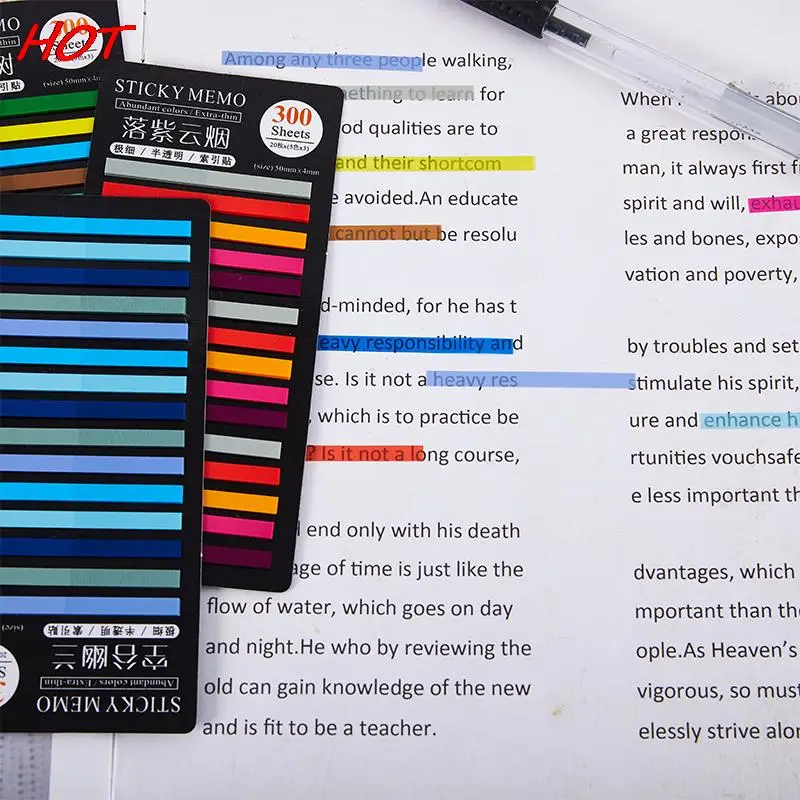 HOT
MEMO
300
Sheets
(size) 50mm×4mm
STICKY MEMO
Abundant colors / Extra-thin
落紫云烟
极细 / 半透明 / 索引贴
300
Sheets
20枚x(5色x3)
(size) 50mm×4mm
STICKY MEMO
Abundant colors / Extra-thin
空谷幽兰
极细 / 半透明 / 索引贴
(size)
Among any three people walking,
mething to learn for
od qualities are to
and their shortcom
e avoided.An educate
cannot but be resolu
d-minded, for he has t
eavy responsibility and
se. Is it not a heavy res
, which is to practice be
? Is it not a long course,
end only with his death
age of time is just like the
flow of water, which goes on day
and night.He who by reviewing the
old can gain knowledge of the new
and is fit to be a teacher.
When
abou
a great respon
man, it always first f
spirit and will, exhau
les and bones, expo
vation and poverty,
by troubles and set
stimulate his spirit,
ure and enhance h
rtunities vouchsafe
e less important th
dvantages, which
mportant than the
ople.As Heaven's
vigorous, so must
elessly strive alon